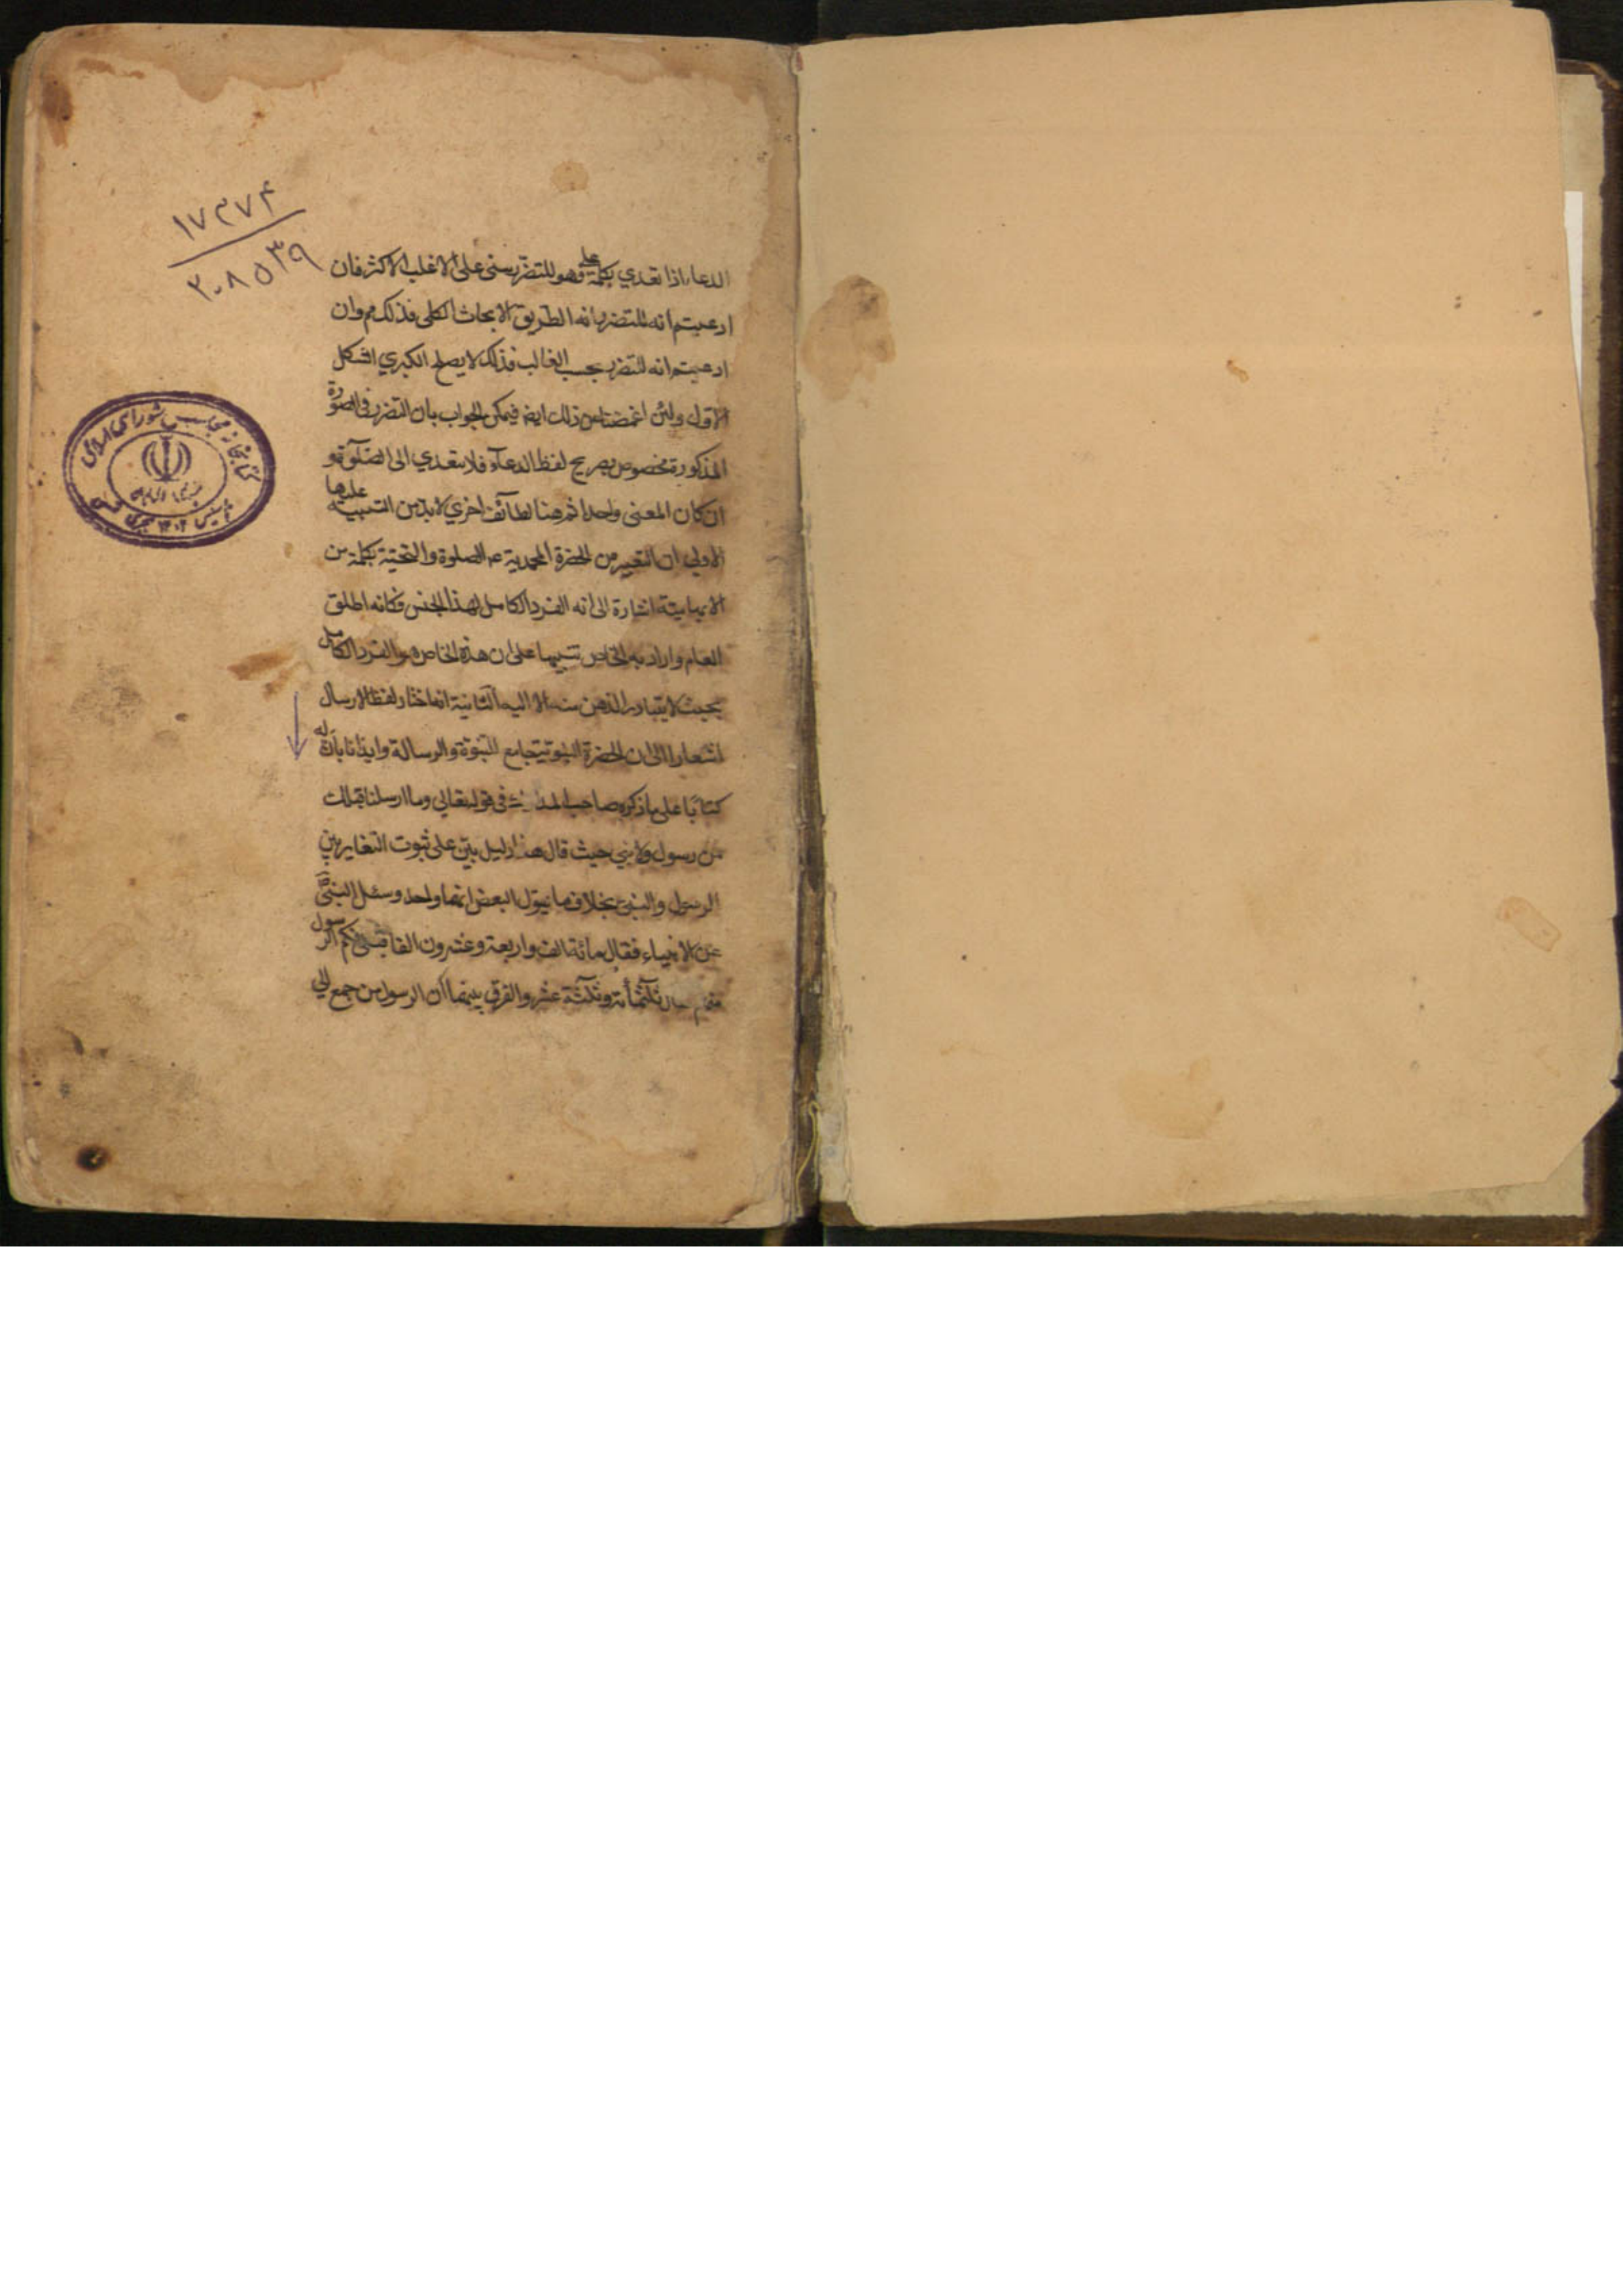 ۱۷۳۷۴
۲۰۸۵۳۹
الدعاء اذا تعدي بكلمة على فهو للتضرر مبنى على الاغلب الاكثر فان
ادعيتم انه للتضرر بانه الطريق الكلى فذلك مم وان
ادعيتم انه للتضرر بحسب الغالب فذلك لا يصلح الكبري الشكل
الاول ولئن اغمضنا عن ذلك ايضا فيمكن الجواب بان التضرر فى الصورة
المذكورة مخصوص بصريح لفظ الدعاء فلا يتعدي الى الصلوة و
ان كان المعنى واحدا ثم هنا لطائف اخري لا بد من التنبيه عليها
الاولى ان التعبير من الحضرة المحمدية عم الصلوة والتحية بكلمة من
الابهامية اشارة الى انه الفرد الكامل لهذا الجنس فكانه اطلق
العام واراد به الخاص تنبيها على ان هذه الخاص هو الفرد الكامل
بحيث لا يتبادر الذهن منه الا اليه الثانية انما اختار لفظ الارسال
اشعارا الى ان الحضرة النبوية جامع للنبوة والرسالة وايذانا بان له
كتابا على ما ذكره صاحب فى قوله تعالي وما ارسلنا قبلك
من رسول ولا نبي حيث قال هذا دليل بين على ثبوت التغاير بين
الرسول والنبى بخلاف ما يقول البعض انهما واحد وسئل النبى
عن الانبياء فقال مائة الف واربعة وعشرون الفا كم الرسول
منهم ثلثمائة وثلثة عشر والفرق بينهما ان الرسول من جمع الي
كتابخانه مجلس شورای اسلامی